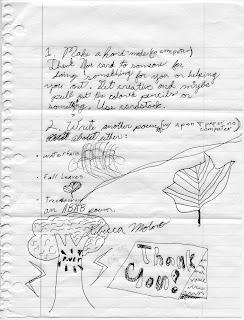 1. Make a hand-made (w/ a poem)
Thank You card to someone for
doing something for you or helping
you out. Get creative and maybe
pull out the colored pencils or
something. Use cardstock.
2. Write another poem (w/ a pen & paper, no computer)
about either:
• Waterfalls
• Fall Leaves
• Trees
an ABAB poem.
Molina
Thank
You!